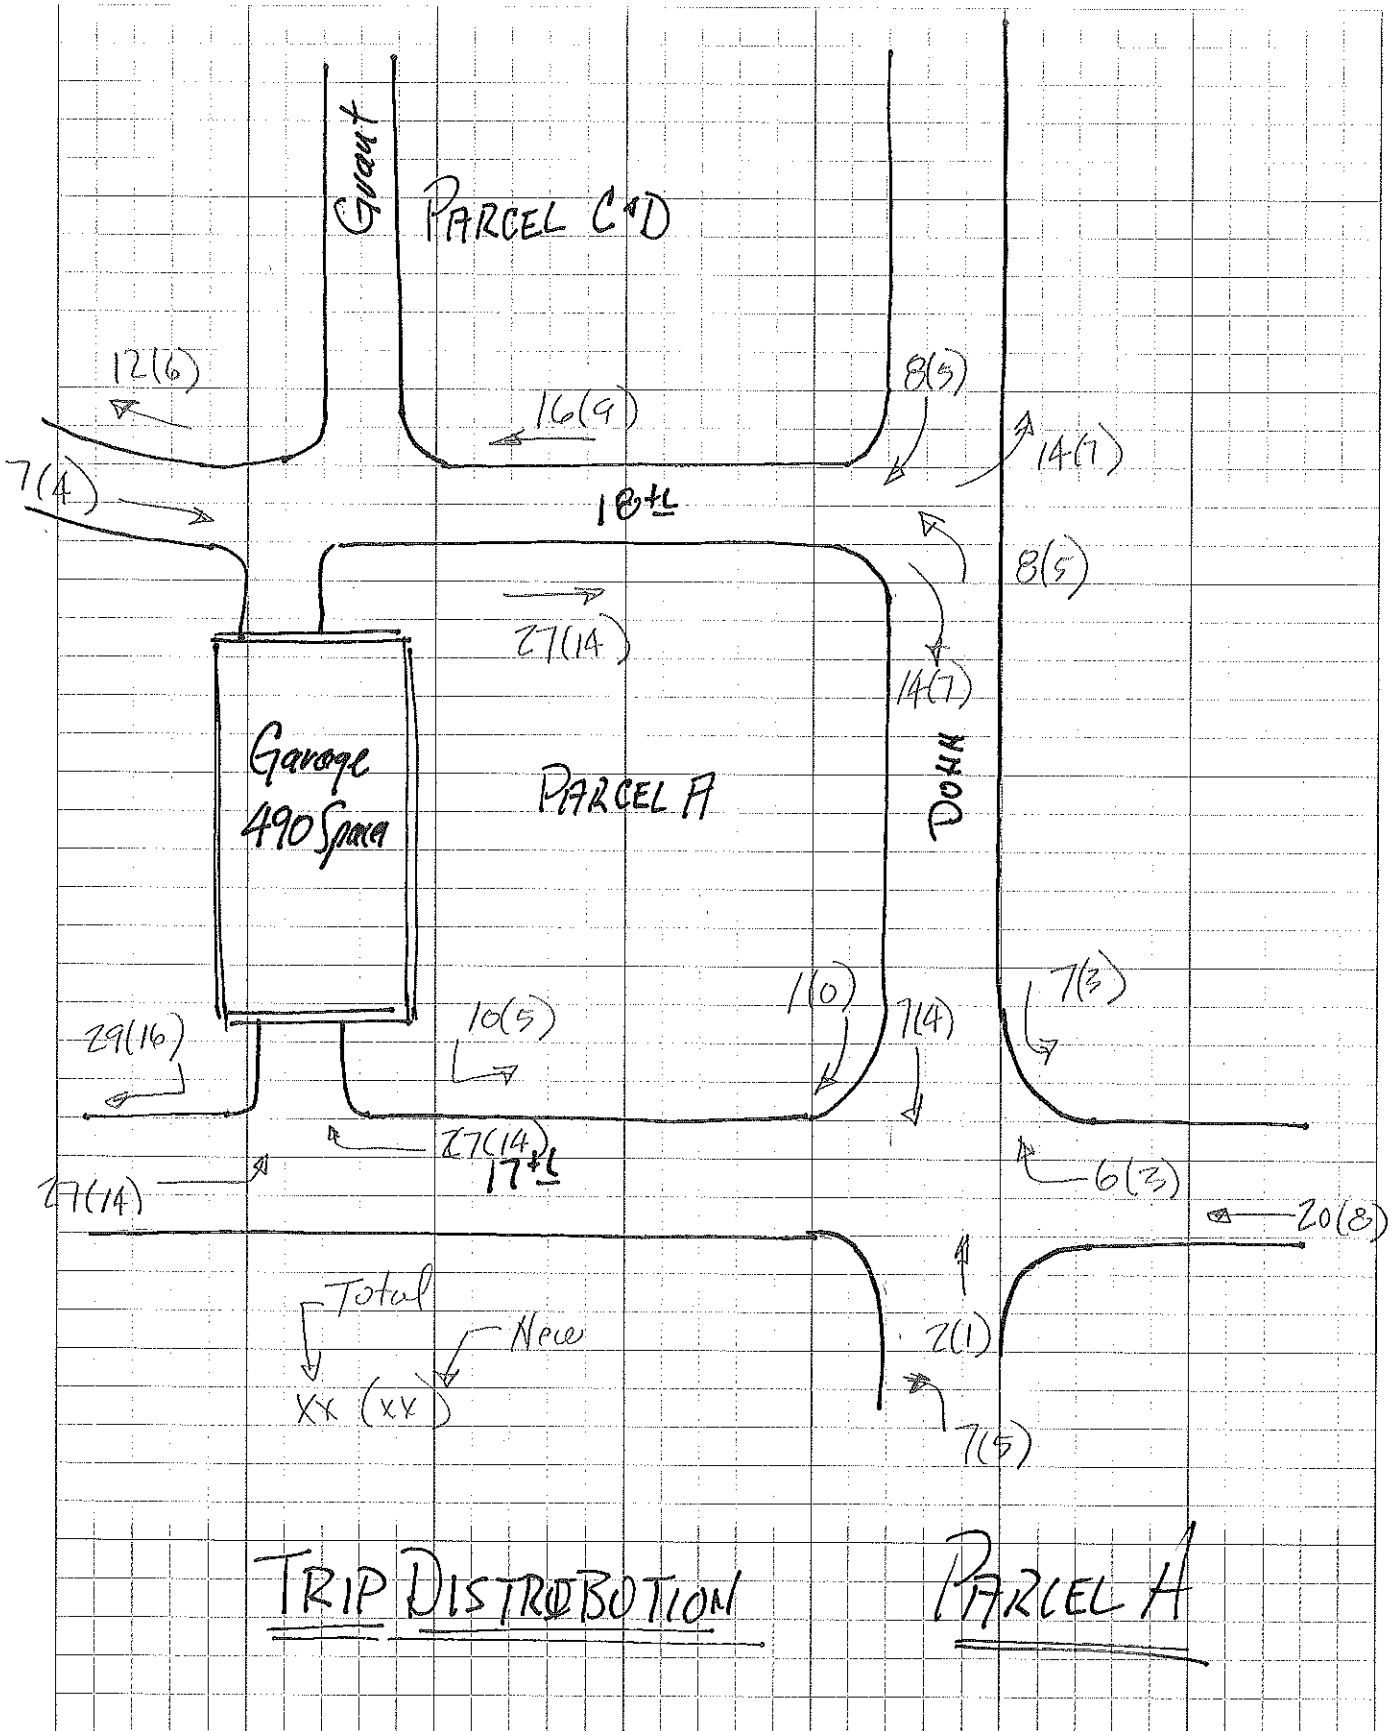 Grant
PARCEL C+D
12(6)
16(9)
8(5)
14(7)
7(4)
18th
8(5)
27(14)
14(7)
Garage
490 Spaces
PARCEL A
DOHN
1(0)
7(4)
7(3)
29(16)
10(5)
27(14)
17th
27(14)
6(3)
20(8)
Total
New
2(1)
xx (xx)
7(5)
TRIP DISTRIBUTION
PARCEL A